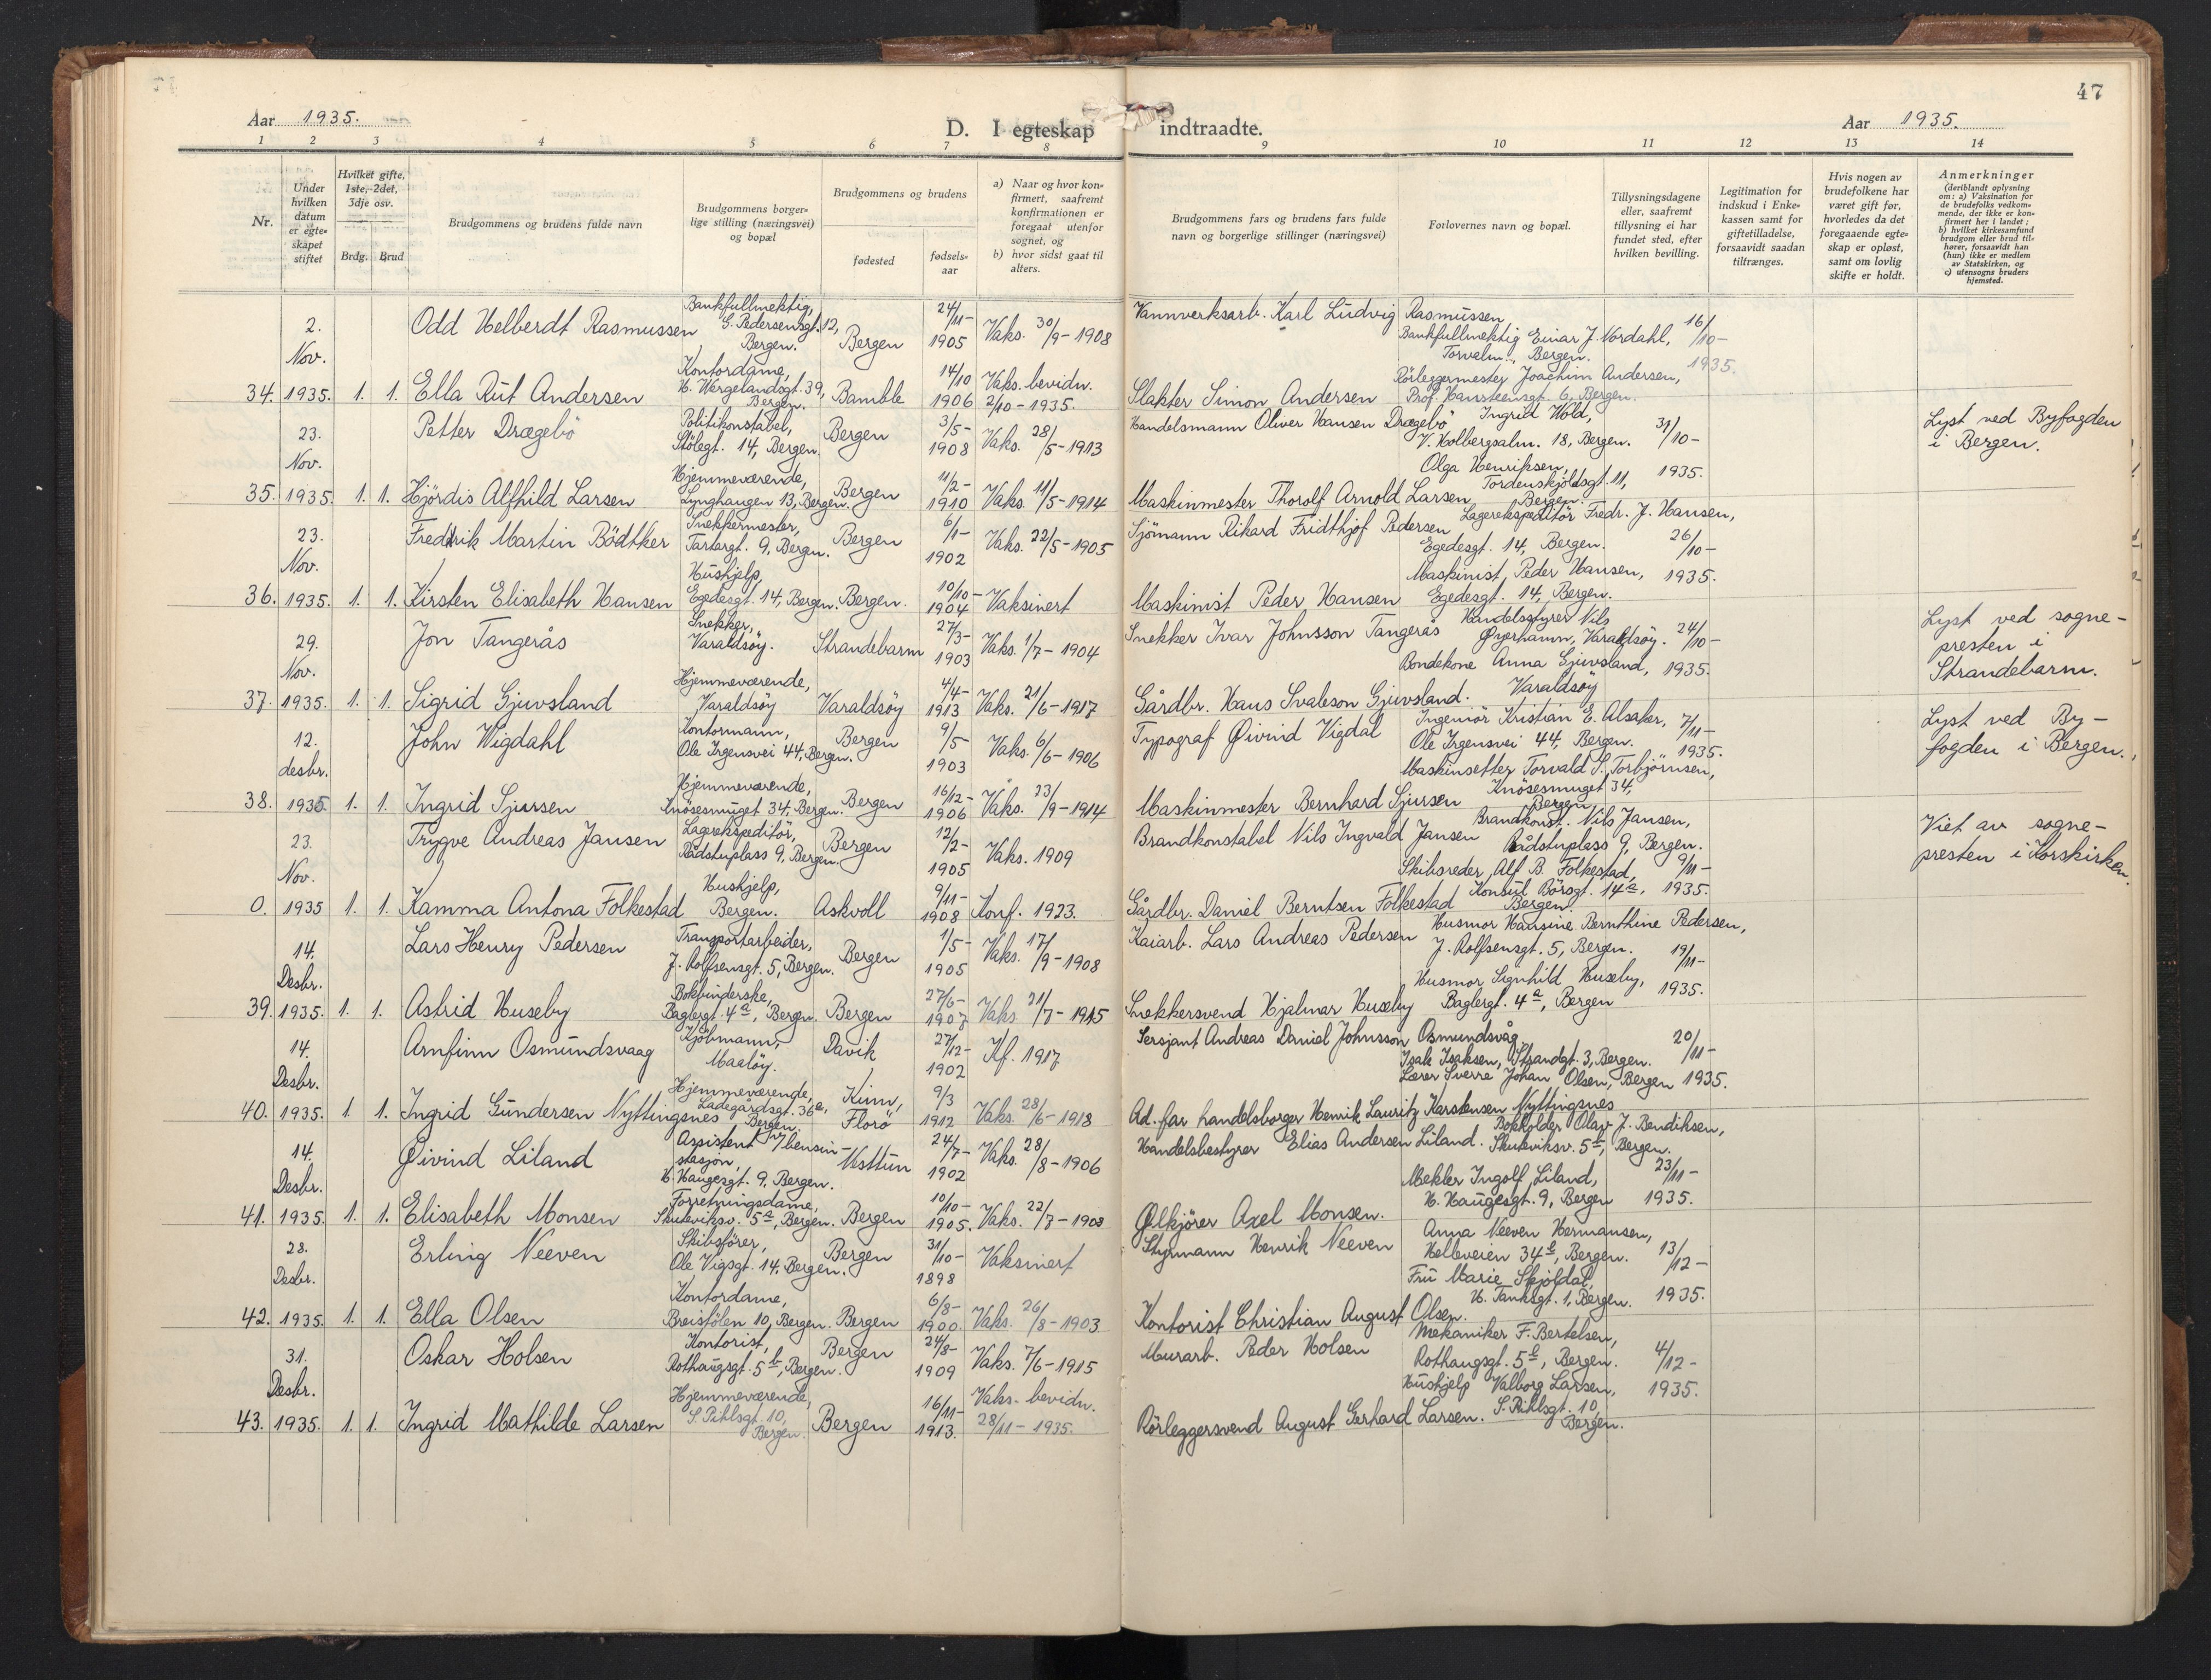 47
Aar 1935.
D. I egteskap indtraadte.
Aar 1935.
1 2 3 4 5 6 7 8 9 10 11 12 13 14
Nr.
Under hvilken datum er egte-skapet stiftet
Hvilket gifte, 1ste, 2det, 3dje osv.
Brdg. Brud
Brudgommens og brudens fulde navn
Brudgommens borger-lige stilling (næringsvei) og bopæl
Brudgommens og brudens
fødested
fødsels-aar
a) Naar og hvor kon-firmert, saafremt konfirmationen er foregaat utenfor sognet, og
b) hvor sidst gaat til alters.
Brudgommens fars og brudens fars fulde navn og borgerlige stillinger (næringsvei)
Forlovernes navn og bopæl.
Tillysningsdagene eller, saafremt tillysning ei har fundet sted, efter hvilken bevilling.
Legitimation for indskud i Enke-kassen samt for giftetilladelse, forsaavidt saadan tiltrænges.
Hvis nogen av brudefolkene har været gift før, hvorledes da det foregaaende egte-skap er opløst, samt om lovlig skifte er holdt.
Anmerkninger
(deriblandt oplysning om: a) Vaksination for de brudefolks vedkom-mende, der ikke er kon-firmert her i landet; b) hvilket kirkesamfund brudgom eller brud til-hører, forsaavidt han (hun) ikke er medlem av Statskirken, og c) utensogns bruders hjemsted.
34. 2. Nov. 1935. 1. 1.
Odd Helberdt Rasmussen
Bankfullmektig, G. Pedersensgt. 12, Bergen.
Bergen
24/11- 1905
Vaks. 30/9-1908
Vannverksarb. Karl Ludvig Rasmussen
Bankfullmektig Einar J. Nordahl, Bergen.
16/10- 1935.
Ella Rut Andersen
Kontordame, H. Wergelandsgt. 39, Bergen.
Bamble
14/10 1906
Vaks. bevidn. 2/10-1935.
Slakter Simon Andersen
Rörleggermester Joachim Andersen, Prof. Hansteensgt. 6, Bergen.
35. 23. Nov. 1935. 1. 1.
Petter Drægebö
Politikonstabel, Stölegt. 14, Bergen.
Bergen
3/5- 1908
Vaks. 28/5-1913
Handelsmann Oliver Hansen Drægebö
Ingrid Wold, V. Holbergsalm. 18, Bergen.
31/10- 1935.
Lyst ved Byfogden i Bergen.
Hjördis Alfhild Larsen
Hjemmeværende, Lynghaugen 13, Bergen.
Bergen
11/2- 1910
Vaks. 11/5-1914
Maskinmester Thorolf Arnold Larsen
Olga Henriksen, Tordenskjoldsgt. 11, Bergen.
36. 23. Nov. 1935. 1. 1.
Fredrik Martin Bödtker
Snekkermester, Tartargt. 9, Bergen.
Bergen
6/1- 1902
Vaks. 22/5-1905
Sjömann Rikard Fridthjof Pedersen
Lagerekspeditör Fredr. J. Hansen, Egedesgt. 14, Bergen.
26/10- 1935.
Kirsten Elisabeth Hansen
Hushjelp, Egedesgt. 14, Bergen.
Bergen.
10/10- 1904
Vaksinert
Maskinist Peder Hansen
Maskinist Peder Hansen, Egedesgt. 14, Bergen.
37. 29. Nov. 1935. 1. 1.
Jon Tangerås
Snekker, Varaldsöy.
Strandebarm
27/3- 1903
Vaks. 1/7-1904
Snekker Ivar Johnsson Tangerås
Handelsstyrer Nils Øyerhamn, Varaldsöy.
24/10- 1935.
Lyst ved sogne-presten i Strandebarm.
Sigrid Gjuvsland
Hjemmeværende, Varaldsöy
Varaldsöy
4/4- 1913
Vaks. 21/6-1917
Gårdbr. Haus Svaleson Gjuvsland.
Bondekone Anna Gjuvsland, Varaldsöy
38. 12. desbr. 1935. 1. 1.
John Wigdahl
Kontormann, Ole Irgensvei 44, Bergen.
Bergen
9/5 1903
Vaks. 6/6-1906
Typograf Øivind Vigdal
Ingeniör Kristian E. Alsaker, Ole Irgensvei 44, Bergen.
7/11- 1935.
Lyst ved By-fogden i Bergen.
Ingrid Sjursen
Hjemmeværende, Knösesmuget 34, Bergen.
Bergen
16/12- 1906
Vaks. 23/9-1914
Maskinmester Bernhard Sjursen
Maskinsetter Torvald S. Torbjörnsen, Knösesmuget 34, Bergen
0. 23. Nov. 1935 1. 1.
Trygve Andreas Jansen
Lagerekspeditör, Rådstuplass 9, Bergen.
Bergen
12/2- 1905
Vaks. 1909
Brandkonstabel Nils Ingvald Jansen
Brandkonst. Nils Jansen, Rådstuplass 9, Bergen.
9/11- 1935.
Viet av sogne-presten i Korskirken.
Kamma Antona Folkestad
Hushjelp, Bergen.
Askvoll
9/11- 1908
Konf. 1923.
Gårdbr. Daniel Berntsen Folkestad
Skibsreder Alf B. Folkestad, Konsul Börsgt. 14a, Bergen.
39. 14. Desbr. 1935. 1. 1.
Lars Henry Pedersen
Transportarbeider, J. Rolfsensgt. 5, Bergen.
Bergen
1/5- 1905
Vaks. 17/9-1908
Kaiarb. Lars Andreas Pedersen
Husmor Hansine Bernthine Pedersen, J. Rolfsensgt. 5, Bergen.
19/11- 1935.
Astrid Huseby
Bokbinderske, Baglergt. 4a, Bergen.
Bergen
27/6- 1907
Vaks. 21/7-1915
Snekkersvend Hjalmar Huseby
Husmor Signhild Huseby, Baglergt. 4a, Bergen
40. 14. Desbr. 1935. 1. 1.
Arnfinn Osmundsvaag
Kjöbmann, Maalöy.
Davik
27/12- 1902
Kf. 1917
Sersjant Andreas Daniel Johnsson Osmundsvåg
Isak Isaksen, Strandgt. 3, Bergen.
20/11- 1935.
Ingrid Gundersen Nyttingsnes
Hjemmeværende, Ladegårdsgt. 36a, Bergen.
Kinn, Florö
9/3 1912
Vaks. 28/6-1918
Ad. far handelsborger Henrik Lauritz Karstensen Nyttingsnes
Lærer Sverre Johan Olsen, Bergen
41. 14. Desbr. 1935. 1. 1.
Øivind Liland
Assistent v/bensin-stasjon, H. Haugesgt. 9, Bergen.
Nesttun
24/7- 1902
Vaks. 28/8-1906
Handelsbestyrer Elias Andersen Liland.
Bokholder Olav J. Bendiksen, Skuteviksv. 5a, Bergen.
23/11- 1935.
Elisabeth Monsen
Forretningsdame, Skuteviksv. 5a, Bergen.
Bergen
10/10- 1905.
Vaks. 22/7-1908
Ølkjörer Axel Monsen.
Mekler Ingolf Liland, H. Haugesgt. 9, Bergen
42. 28. Desbr. 1935. 1. 1.
Erling Neeven
Skibsförer, Ole Vigsgt. 14, Bergen.
Bergen
31/10- 1898
Vaksinert
Styrmann Henrik Neeven
Anna Neeven Hermansen, Helleveien 34b, Bergen.
13/12- 1935.
Ella Olsen
Kontordame, Breistölen 10, Bergen.
Bergen
6/8- 1900.
Vaks. 26/8-1903
Kontorist Christian August Olsen.
Fru Marie Skjoldal, H. Tanksgt. 1, Bergen.
43. 31. Desbr. 1935. 1. 1.
Oskar Holsen
Kontorist, Rothaugsgt. 5b, Bergen.
Bergen
24/8- 1909
Vaks. 7/6-1915
Murarb. Peder Holsen
Mekaniker F. Bertelsen, Rothaugsgt. 5b, Bergen.
4/12- 1935.
Ingrid Mathilde Larsen
Hjemmeværende, S. Pihlsgt. 10, Bergen.
Bergen
16/11- 1913.
Vaks. bevidn. 28/11-1935.
Rörleggersvend August Gerhard Larsen.
Hushjelp Valborg Larsen, S. Pihlsgt. 10, Bergen.